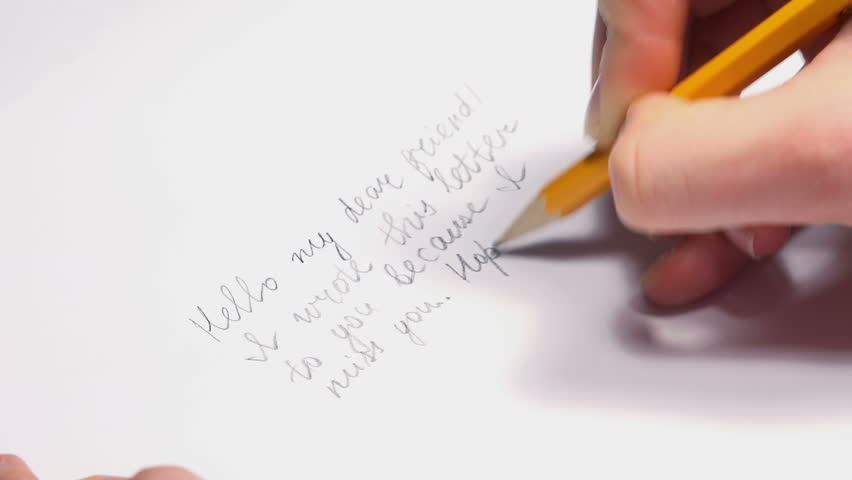 Hello my dear friend!
I wrote this letter
to you because I
miss you. Hop